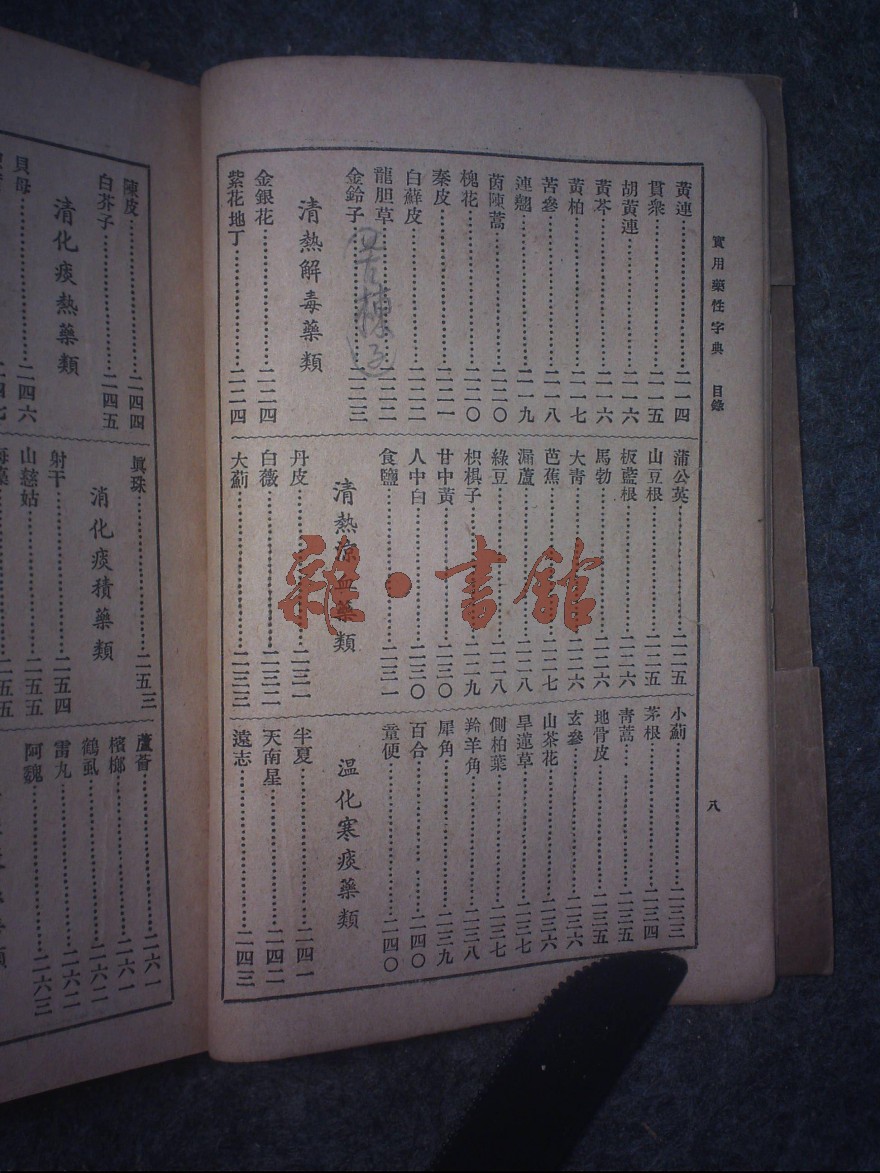 實用藥性字典 目錄
八
黃連 二一四
貫衆 二一五
胡黃連 二一六
黃芩 二一六
黃柏 二一七
苦參 二一八
連翹 二一九
茵陳蒿 二二〇
槐花 二二〇
秦皮 二二一
白蘚皮 二二二
龍胆草 二二二
金鈴子 二二三
清熱解毒藥類
金銀花 二二四
紫花地丁 二二四
蒲公英 二二五
山豆根 二二五
板藍根 二二六
馬勃 二二六
大青 二二六
芭蕉 二二七
漏蘆 二二八
綠豆 二二八
枳椇子 二二九
甘中黃 二三〇
人中白 二三〇
食鹽 二三一
清熱涼血藥類
丹皮 二三一
白薇 二三二
大薊 二三三
小薊 二三三
茅根 二三四
青蒿 二三五
地骨皮 二三五
玄參 二三六
山茶花 二三六
旱蓮草 二三七
側柏葉 二三七
羚羊角 二三八
犀角 二三九
百合 二四〇
童便 二四〇
温化寒痰藥類
半夏 二四一
天南星 二四二
遠志 二四三
陳皮 二四四
白芥子 二四五
清化痰熱藥類
貝母 二四六
二四七
眞珠 二五三
消化痰積藥類
射干 二五四
山慈姑 二五五
海藻 二五五
蘆薈 二六一
檳榔 二六一
鶴虱 二六二
雷丸 二六二
阿魏 二六三
雜·書館